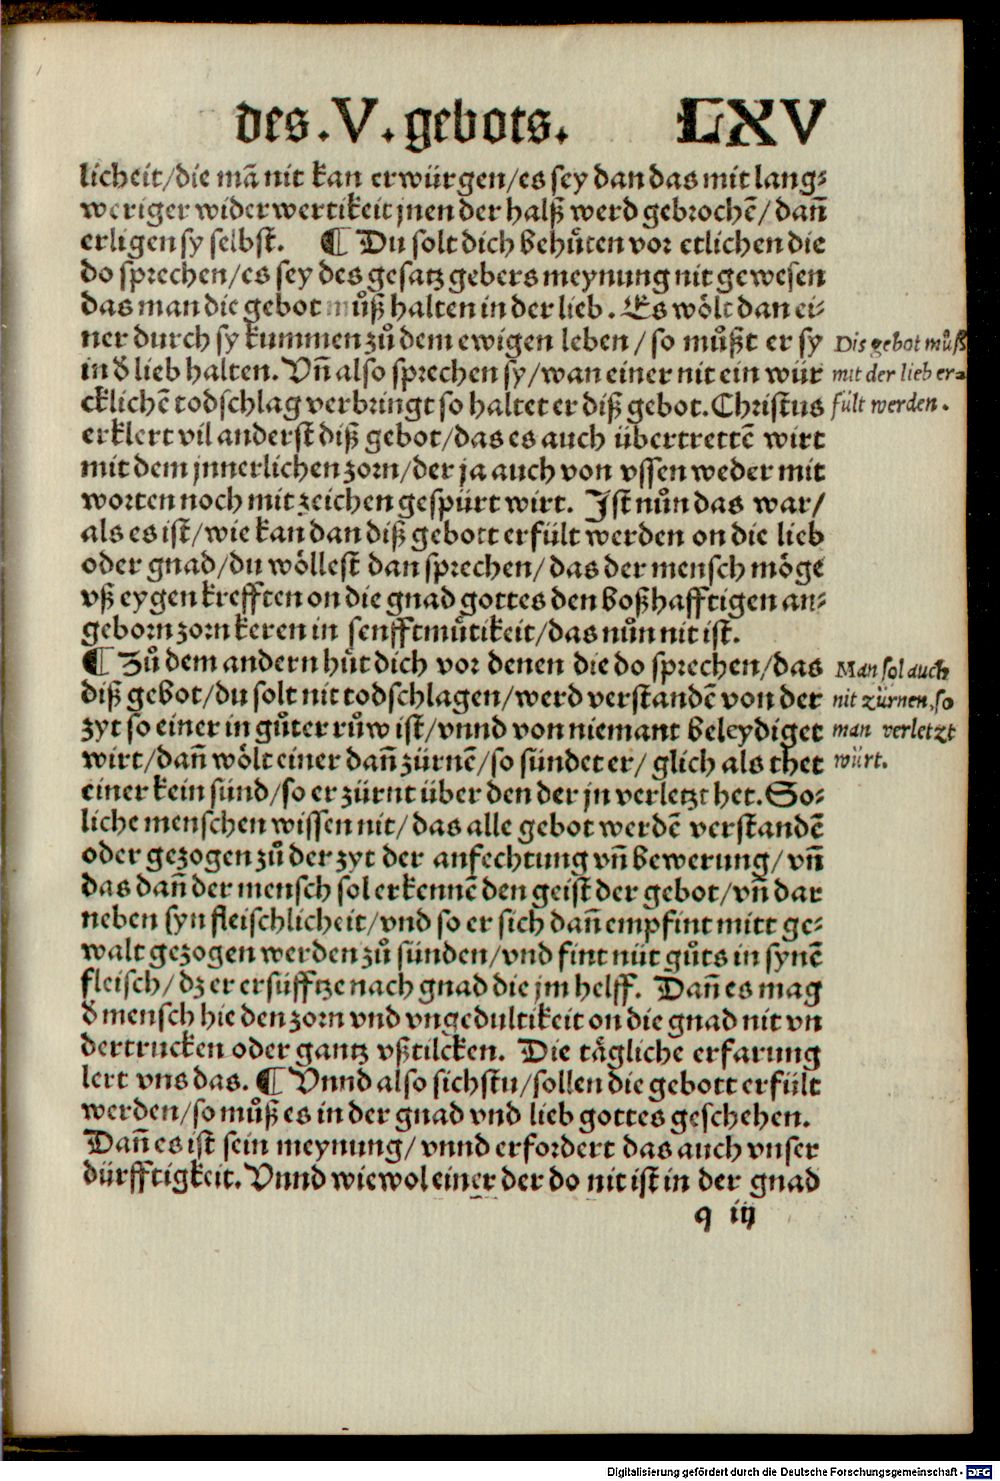 des.V.gebots. LXV
licheit/die mā nit kan erwürgen/es sey dan das mit lang⸗
weriger widerwertikeit jnen der halß werd gebrochē/dañ
erligen sy selbst. ¶ Du solt dich behüten vor etlichen die
do sprechen/es sey des gesatz gebers meynung nit gewesen
das man die gebot můß halten in der lieb. Es wölt dan ei⸗
ner durch sy kummen zů dem ewigen leben/so můßt er sy
in d lieb halten. Vñ also sprechen sy/wan einer nit ein wür
cklichē todschlag verbringt so haltet er diß gebot. Christus
erklert vil anderst diß gebot/das es auch übertrettē wirt
mit dem jnnerlichen zorn/der ja auch von vssen weder mit
worten noch mit zeichen gespürt wirt. Ist nůn das war/
als es ist/wie kan dan diß gebott erfült werden on die lieb
oder gnad/du wöllest dan sprechen/das der mensch möge
vß eygen krefften on die gnad gottes den boßhafftigen an⸗
geborn zorn keren in senfftmůtikeit/das nůn nit ist.
Dis gebot můß
mit der lieb er⸗
fült werden.
¶ Zů dem andern hüt dich vor denen die do sprechen/das
diß gebot/du solt nit todschlagen/werd verstandē von der
zyt so einer in gůter růw ist/vnnd von niemant beleydiget
wirt/dañ wölt einer dañ zürnē/so sündet er/glich als thet
einer kein sünd/so er zürnt über den der jn verletzt het. So⸗
liche menschen wissen nit/das alle gebot werdē verstandē
oder gezogen zů der zyt der anfechtung vñ bewerung/vñ
das dañ der mensch sol erkennē den geist der gebot/vñ dar
neben syn fleischlicheit/vnd so er sich dañ empfint mitt ge⸗
walt gezogen werden zů sünden/vnd fint nüt gůts in synē
fleisch/dz er ersüfftze nach gnad die jm helff. Dañ es mag
d mensch hie den zorn vnd vngedultikeit on die gnad nit vn
dertrucken oder gantz vßtilcken. Die tägliche erfarung
lert vns das. ¶ Vnnd also sichstu/sollen die gebott erfült
werden/so můß es in der gnad vnd lieb gottes geschehen.
Dañ es ist sein meynung/vnnd erfordert das auch vnser
dürfftigkeit. Vnnd wiewol einer der do nit ist in der gnad
Man sol auch
nit zürnen, so
man verletzt
würt.
q iij
Digitalisierung gefördert durch die Deutsche Forschungsgemeinschaft - DFG